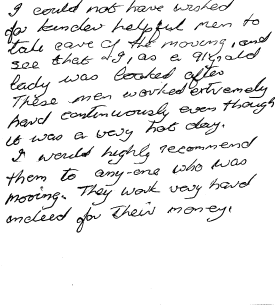 I could not have wished
for kinder helpful men to
take care of the moving, and
see that I, as a 91yr old
lady was looked after
These men worked extremely
hard continuously even though
it was a very hot day.
I would highly recommend
them to any-one who was
moving. They work very hard
indeed for their money.